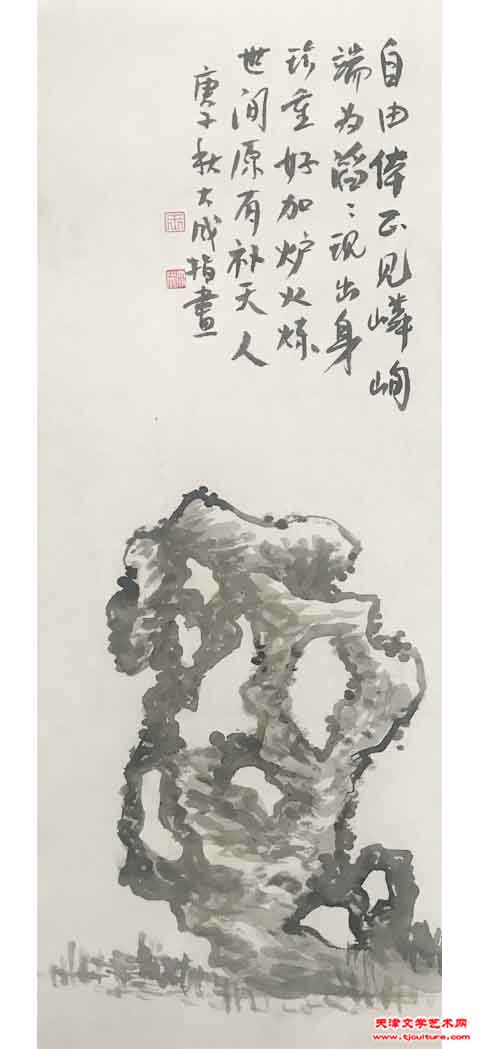 自由倖正见嶙峋
端为滔々现出身
珍重好加炉火炼
世间原有补天人
庚子秋大成指畫
天津文学艺术网
www.tjculture.com